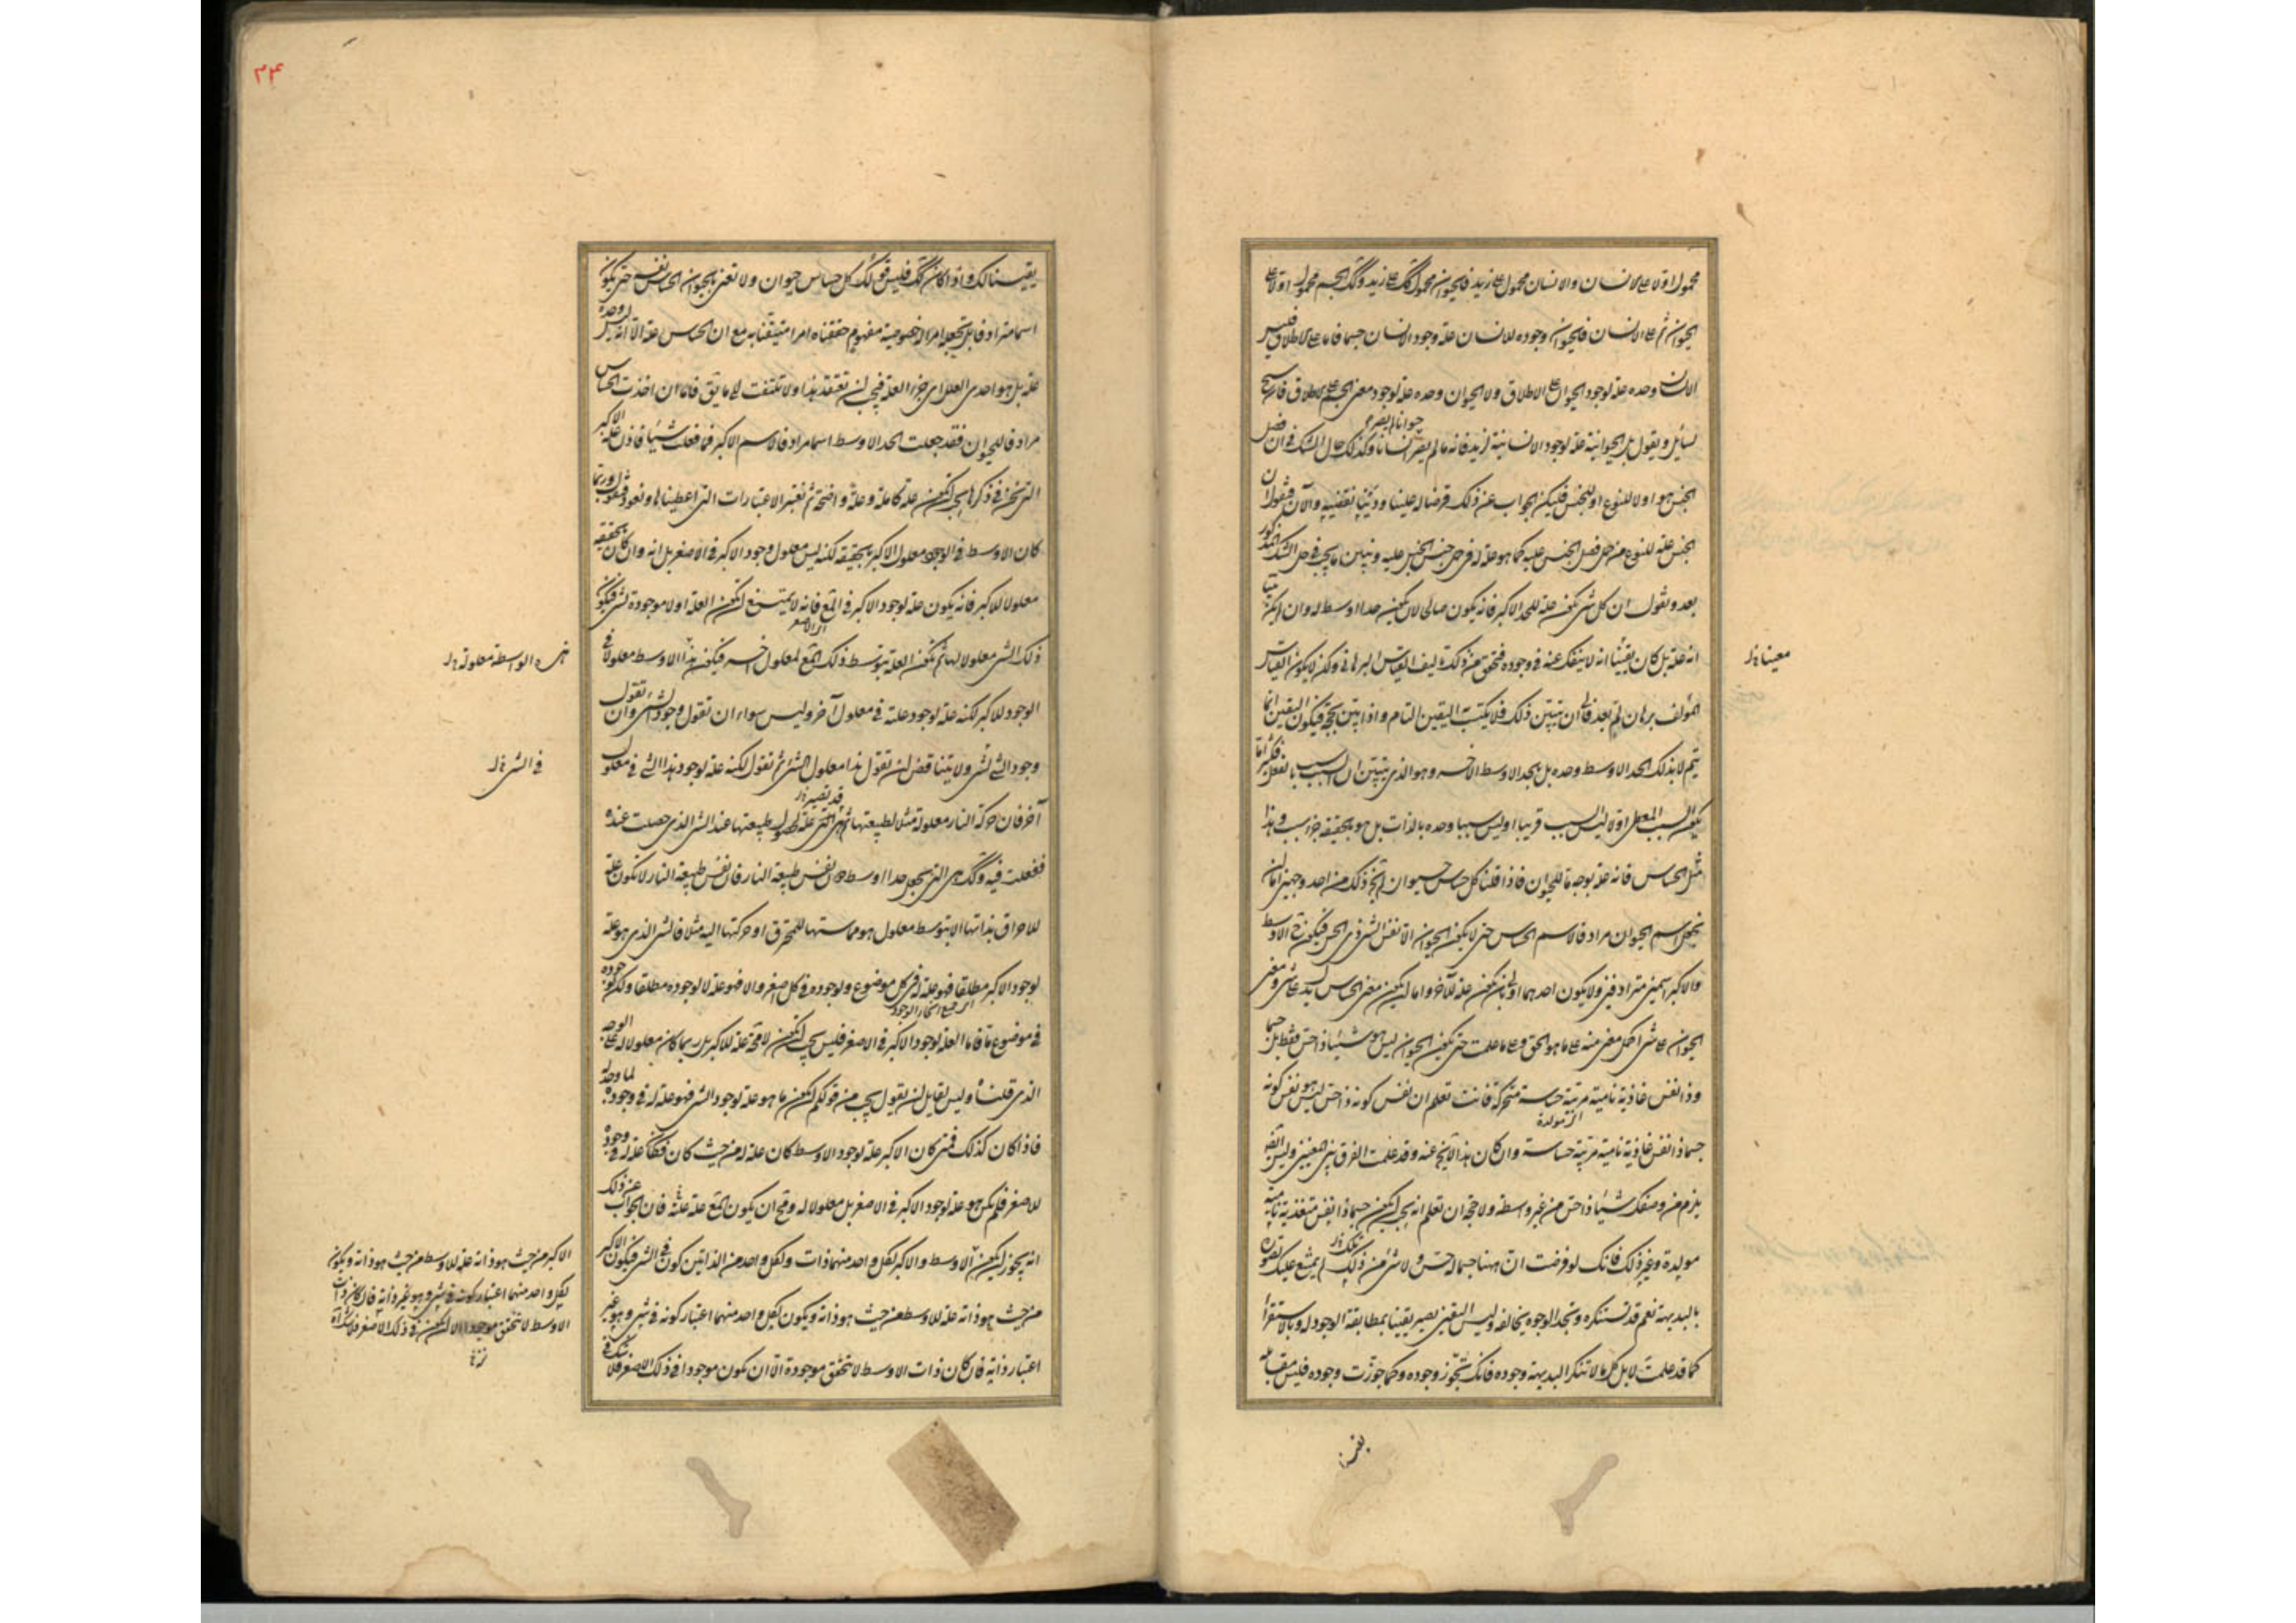 محمول اولا على الانسان والانسان محمول على زيد فالحيوان محمول كك على زيد وكك الجسم محمول اولا على
الحيوان ثم على الانسان فالحيوان وجوده للانسان علة وجود الانسان جسما فاما على الاطلاق فليس
الانسان وحده علة لوجود الحيوان على الاطلاق ولا الحيوان وحده علة لوجود معنى الجسم على الاطلاق
لسائل ويقول بل الحيوانية علة لوجود الانسانية لزيد فانه ما لم يصر انسانا وكذلك حال الشك في ان فصل
حيوانا لم يصر
الجنس هو اولا للنوع او للجنس فليكن الجواب عن ذلك قرضا له علينا ودينا نقضيه والآن فنقول ان
الجنس علة للنوع من حمل فصل الجنس عليه كما هو علة له في حمل جنس الجنس عليه ونبين ما يجب في حل الشك المذكور
بعد ونقول ان كل شىء يكون علة للحد الاكبر فانه يكون صالحا لان يكون حدا اوسط له وان لم يكن بينا
انه علة بل كان بقينا انه لا ينفك عنه في وجوده فيتحقق من ذلك تاليف القياس البرهانى ولكن لا يكون القياس
معينا نل
المؤلف برهان لم بعد فالى ان يتبين ذلك فلا يكتسب اليقين التام واذا تبين بحجة فيكون اليقين انما
يتم لا بذلك الحد الاوسط وحده بل بالحد الاوسط الاخر وهو الذي يتبين ان السبب سبب بالفعل
يكون السبب المعطى اولا ليس السبب قريبا او ليس سببا وحده بالذات بل هو بالحقيقة جزء سبب وهذا
مثل الحساس فانه علة بوجه ما للحيوان فاذا قلنا كل حساس حيوان لم يخل ذلك من احد وجهين اما ان
يجعل اسم الحيوان مرادفا لاسم الحساس حتى لا يكون الحيوان الا نفس الشىء ذى الحس فيكون ح الاوسط
والاكبر اسمين مترادفين ولا يكون احدهما اولى بان يكون علة للآخر واما ان يكون معنى الحساس يدل على شىء ومعنى
الحيوان على شىء اكمل معنى منه على ما هو الحق وعلى ما علمت حتى يكون الحيوان ليس هو شيئا ذا حس فقط بل جسما
وذا نفس غاذية نامية مربية حساسة متحركة فانت تعلم ان نفس كونه ذا حس ليس هو نفس كونه
اى مولدة
جسما ذا نفس غاذية نامية مربية حساسة وان كان هذا لا يخ عنه وقد علمت الفرق بين المعنيين وليس ايضا
يلزم من وصفك شيئا ذا حس من غير واسطة ولا حجة ان تعلم انه يجب ان يكون جسما ذا نفس متغذية نامية
مولدة وغير ذلك فانك لو فرضت ان ههنا جسما له حس ولا شىء من ذلك لم يمتنع عليك تصوره
تلك نل
بالبديهة نعم قد تستنكره وتجد الوجود يخالفه وليس اليقين يصير يقينا بمطابقة الوجود له وبالاستقراء
كما قد علمت لا بل كل ما لا تنكر البديهة وجوده فانك تجوز وجوده وكما جوزت وجوده فليس مقابله
يقينا
٢٤
يقينا لك واذا كان كك فليس قولك كل حساس حيوان ولا تعنى بالحيوان الحساس نفسه حتى يكون
اسما مترادفا بل تجعله امرا له خصوصية مفهوم حققناه امرا متيقنا به مع ان الحساس علة الا انه ليس لوحده
علة بل هو احدى العلل اى جزء العلة فيجب ان تعتقد هذا ولا تلتفت الى ما يق فاما ان اخذت الحساس
مرادفا للحيوان فقد جعلت الحد الاوسط اسما مرادفا لاسم الاكبر فما فعلت شيئا فاذن علة الاكبر
التى نحن في ذكرها يجب ان تكون علة كاملة وعلة واضحة ثم تعتبر الاعتبارات التى اعطيناها ونعود فنقول وربما
كان الاوسط في الوجود معلول الاكبر بالحقيقة لكنه ليس معلول وجود الاكبر في الاصغر بل انه وان كان بالحقيقة
معلولا للاكبر فانه يكون علة لوجود الاكبر في الاصغر فانه لا يمتنع ان تكون العلة اولا موجودة لشىء فيكون
اى الاصغر
ذلك الشىء معلولا لها ثم تكون العلة بتوسط ذلك المعلول لمعلول اخر فيكون هذا الاوسط معلولا في
هذه الواسطة معلولة نل
الوجود للاكبر لكنه علة لوجود علته في معلول آخر وليس سواء ان تقول وجود الشىء وان تقول
وجود الشىء لشىء ولا يتناقض ان تقول هذا معلول الشىء ثم تقول لكنه علة لوجود هذا الشىء في معلول
في الشىء نل
آخر فان حركة النار معلولة مثلا لطبيعتها ثم هى التى علة لحصول طبيعتها عند الشىء الذى حصلت عنده
قد تصير نل
ففعلت فيه وكك هى التى تجعل حدا اوسط دون نفس طبيعة النار فان نفس طبيعة النار لا تكون علة
للاحراق بذاتها الا بتوسط معلول هو مماستها للمحترق او حركتها اليه مثلا فالشىء الذى هو علة
لوجود الاكبر مطلقا فهو علة له في كل موضوع ولوجوده في كل اصغر والا فهو علة لا لوجوده مطلقا ولكن لوجوده
في موضوع ما فاما العلة لوجود الاكبر في الاصغر فليس يجب ان تكون لا محة علة للاكبر بل ربما كان معلولا له على الوجه
الذى قلناه وليس لقايل ان يقول يجب من قولكم ان يكون ما هو علة لوجود الشىء فهو علة له في وجوده لما وجد له
فاذا كان كذلك فمتى كان الاكبر علة لوجود الاوسط كان علة له من حيث كان فكان علة له في وجوده
للاصغر فلم يكن هو علة لوجود الاكبر في الاصغر بل معلولا له وقبح ان يكون المع علة علته فان الجواب عن ذلك
انه يجوز ان يكون الاوسط والاكبر لكل واحد منهما ذات ولكل واحد من الذاتين كون في الشىء فيكون الاكبر
من حيث هو ذاته علة للاوسط من حيث هو ذاته ويكون لكل واحد منهما اعتبار كونه في شىء وهو غير
اعتبار ذاته فان كان ذات الاوسط لا تتحقق موجودة الا ان يكون موجودا في ذلك الاصغر فلا شك في
الاكبر من حيث هو ذاته علة للاوسط من حيث هو ذاته ويكون
لكل واحد منهما اعتبار كونه في شىء وهو غير ذاته فان كان ذات
الاوسط لا تتحقق موجودا الا ان يكون في ذلك الاصغر فلا شك انه